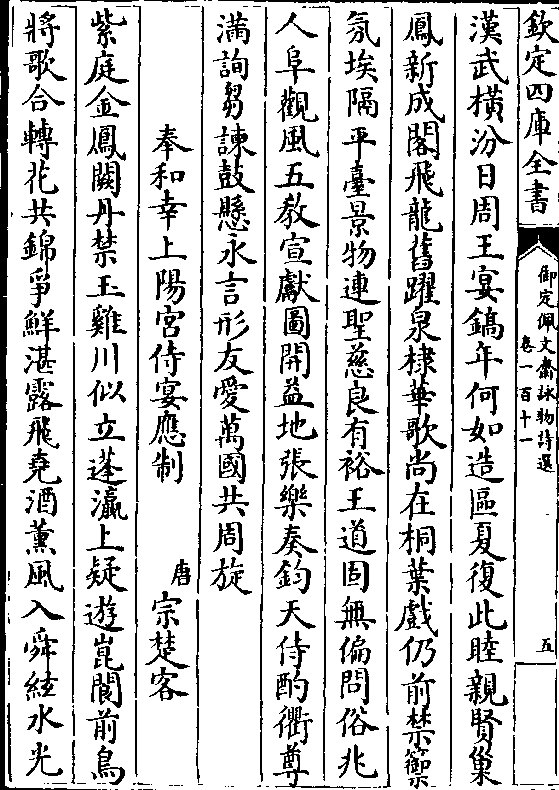 欽定四庫全書
御定佩文齋詠物詩選
卷一百十一
五
漢武橫汾日周王宴鎬年何如造區夏復此睦親賢巢
鳳新成閣飛龍舊躍泉棣華歌尚在桐葉戲仍前禁籞
氛埃隔平臺景物連聖慈良有裕王道固無偏問俗兆
人阜觀風五教宣獻圖開益地張樂奏鈞天侍酌衢尊
滿詢芻諫鼓懸永言形友愛萬國共周旋
奉和幸上陽宮侍宴應制
唐 宗楚客
紫庭金鳳闕丹禁玉雞川似立蓬瀛上疑遊崑閬前鳥
將歌合轉花共錦爭鮮湛露飛堯酒薰風入舜絃水光